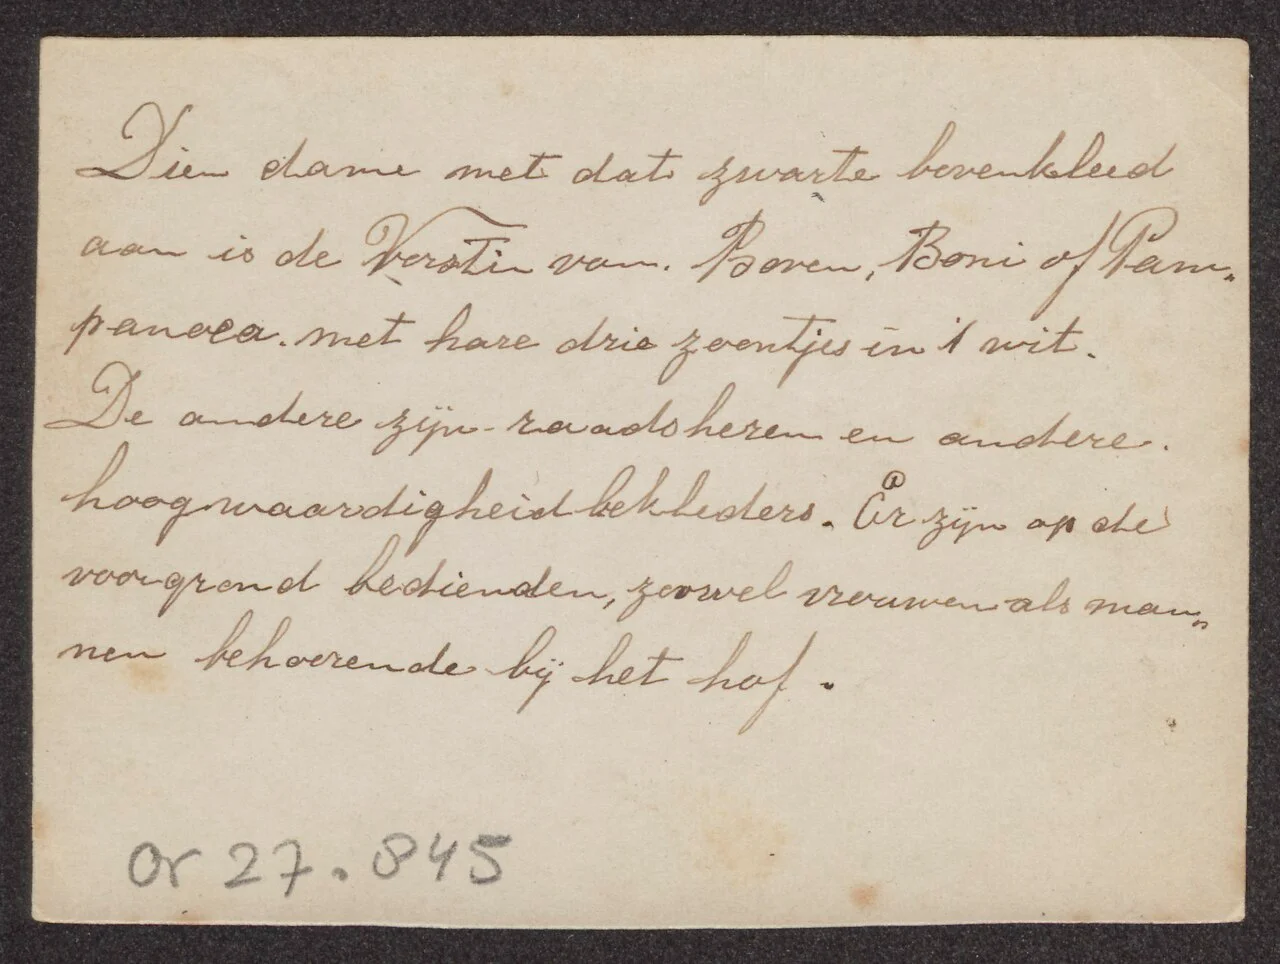 Dien dame met dat zwarte bovenkleed
aan is de Vorstin van. Boven, Boni of Pam„
panoea. met hare drie zoontjes in 't wit.
De andere zijn raadsheren en andere.
hoogwaardigheidbekleders. Er zijn op de
voorgrond bedienden, zoowel vrouwen als man„
nen behoorende bij het hof.
Or 27.845